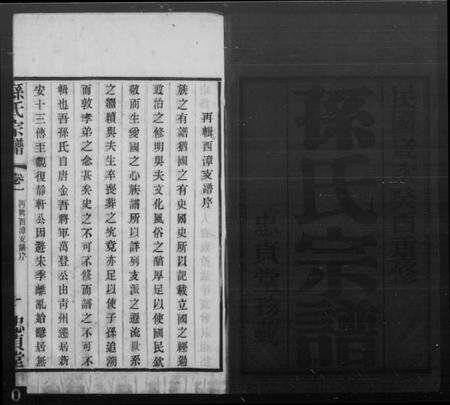 民國
重修
孫氏宗譜
忠貞堂珍藏
再輯西漳支譜序
族之有譜猶國之有史國史所以記載立國之經過
政治之修明與夫文化風俗之醇厚足以使國民欽
敬而生愛國之心族譜所以詳列支派之源流世系
之繼續與夫生卒喪葬之究竟亦足以使子孫追溯
而敦孝弟之念甚矣史之不可不修而譜之不可不
輯也吾孫氏自唐金吾將軍萬登公由青州遷居新
安十三傳至觀復靜軒公因避宋季離亂始隱居無
孫氏宗譜
卷一
再輯西漳支譜序
一
忠貞堂